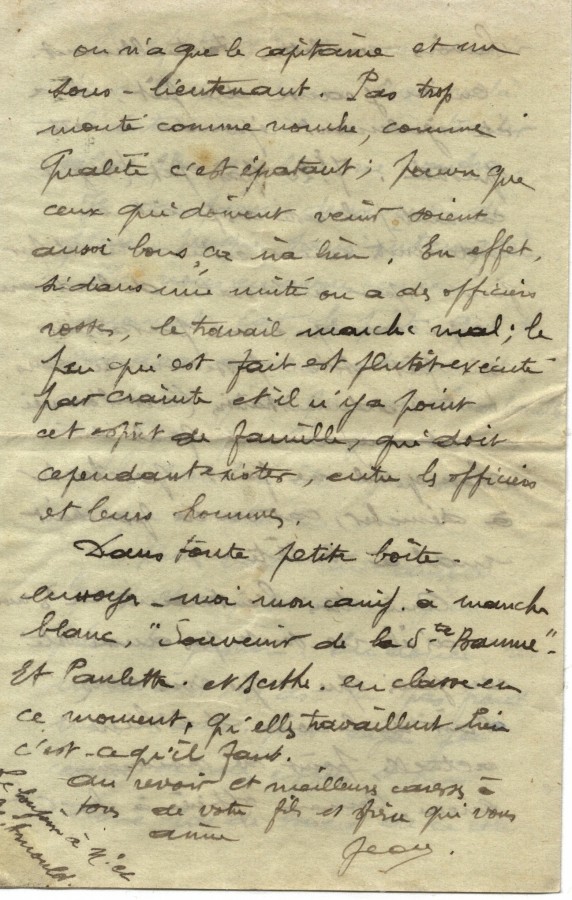 on n'a que le capitaine et un
sous-lieutenant. Pas trop
monté comme nombre, comme
qualité c'est épatant ; pourvu que
ceux qui doivent venir soient
aussi bons, ça ira bien. En effet,
si dans une unité on a des officiers
rosses, le travail marche mal ; le
peu qui est fait est plutôt exécuté
par crainte et il n'y a point
cet esprit de famille, qui doit
cependant exister, entre les officiers
et leurs hommes.
Dans toute petite boîte.
envoyer-moi mon canif. à manche
blanc, "Souvenir de la Ste Baume".
Et Paulette. et Berthe. en classe en
ce moment, qu'elles travaillent bien
c'est-ce qu'il faut.
au revoir et meilleures caresses à
tous de votre fils et frère qui vous
aime
Jean.
Le bonjour à M. et